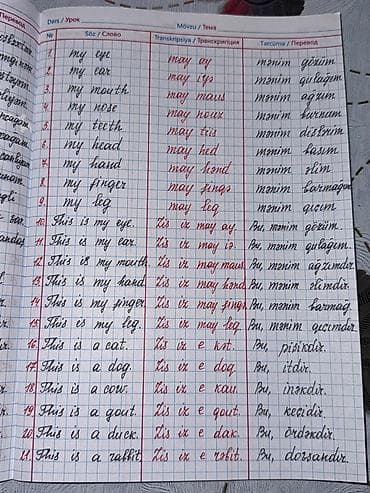 Ders / Урок Mövzu / Тема
№ Söz / Слово Transkripsiya / Транскрипция Tərcümə / Перевод
1. my eye may ay mənim gözüm
2. my ear may iyə mənim qulağım
3. my mouth may maus mənim ağzım
4. my nose may nouz mənim burnum
5. my teeth may tis mənim dişlərim
6. my head may hed mənim başım
7. my hand may hənd mənim əlim
8. my finger may fingə mənim barmağım
9. my leg may leg mənim qıçım
10. This is my eye. Zis iz may ay. Bu, mənim gözüm.
11. This is my ear. Zis iz may iə. Bu, mənim qulağım.
12. This is my mouth. Zis iz may maus. Bu, mənim ağzımdır.
13. This is my hand. Zis iz may hənd. Bu, mənim əlimdir.
14. This is my finger. Zis iz may fingə. Bu, mənim barmağ.
15. This is my leg. Zis iz may leg. Bu, mənim qıçımdır.
16. This is a cat. Zis iz e kət. Bu, pişikdir.
17. This is a dog. Zis iz e dog. Bu, itdir.
18. This is a cow. Zis iz e kau. Bu, inəkdir.
19. This is a gout. Zis iz e gout. Bu, keçidir.
20. This is a duck. Zis iz e dak. Bu, ördəkdir.
21. This is a rabbit. Zis iz e rəbit. Bu, dovşandır.